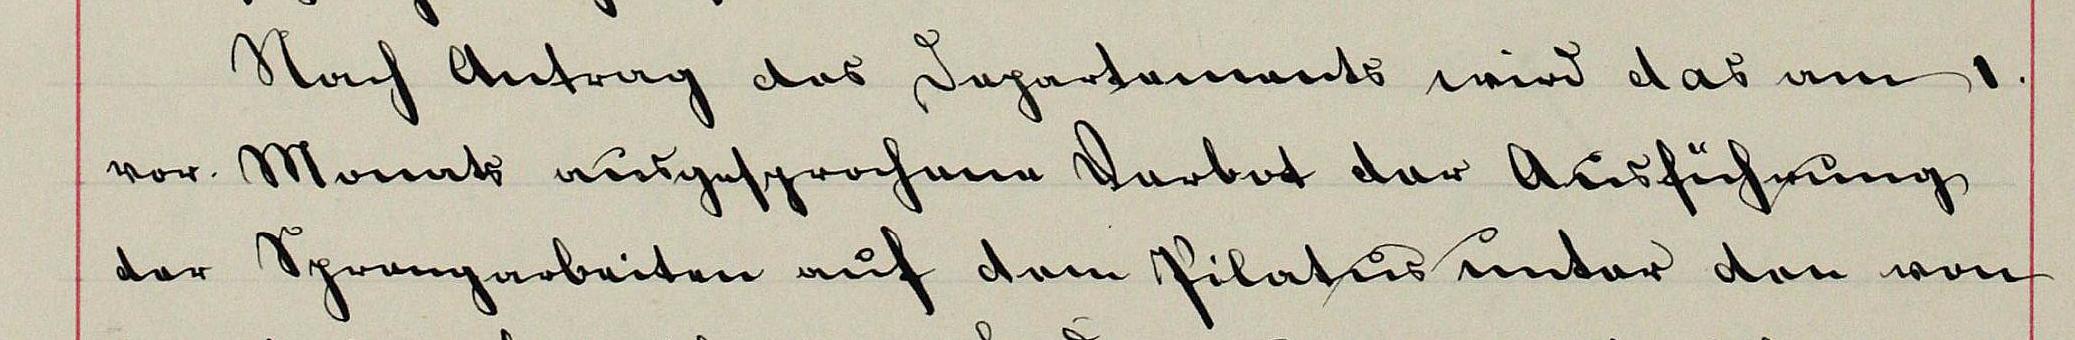 Nach Antrag des Departements wird das am 1.
vor. Monats ausgesprochene Verbot der Ausführung
der Sprengarbeiten auf dem Pilatus unter den von